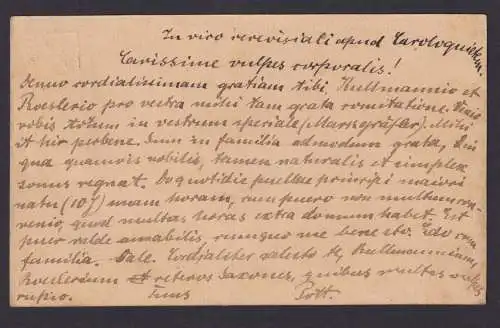 In vico cerevisiali apud Carologuickum.
Carissime vulpes corporalis!
Denuo cordialissimam gratiam tibi, Kullmannio et
Roeslerio pro vestra mihi tam grata comitatione. Venio
vobis totum in vestrum speciale (Marsgräfler). Mihi
it hir perbene. Sum in familia admodum grata, in
qua quamvis nobilis, tamen naturalis et simplex
sonus regnat. Do quotidie puellae principi maiori
natu (10 J) unam horam, cum puero non multum con-
venio, quod multas horas extra domum habet. Est
puer valde amabilis cumque me bene sto. Edo cum
familia. Vale. Cordialiter saluto te, Kullmannium,
Roeslerium et ceteros Saxones, quibus multas
Tuus Pott.